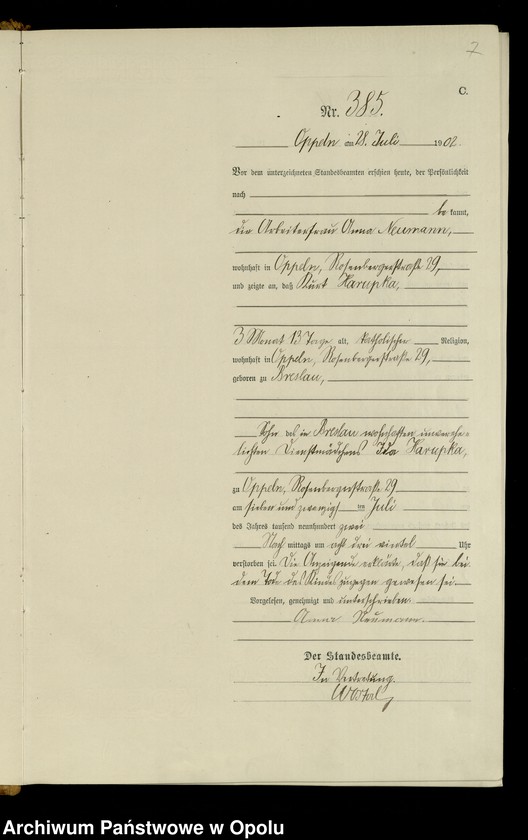 7
C.
Nr. 385.
Oppeln am 28. Juli 1902.
Vor dem unterzeichneten Standesbeamten erschien heute, der Persönlichkeit
nach
bekannt,
die Arbeiterfrau Anna Neumann,
wohnhaft in Oppeln, Rosenbergerstraße 29,
und zeigte an, daß Kurt Harupka,
3 Monat 13 Tage alt, katholischer Religion,
wohnhaft in Oppeln, Rosenbergerstraße 29,
geboren zu Breslau,
Sohn des in Breslau wohnhaften unverehe-
lichten Dienstmädchens Ida Harupka,
zu Oppeln, Rosenbergerstraße 29
am sieben und zwanzigsten Juli
des Jahres tausend neunhundert zwei
Nachmittags um acht drei viertel Uhr
verstorben sei. Die Anzeigende erklärte, daß sie bei
dem Tod des Kindes zugegen gewesen sei.
Vorgelesen, genehmigt und unterschrieben.
Anna Neumann.
Der Standesbeamte.
In Vertretung.
Archiwum Państwowe w Opolu